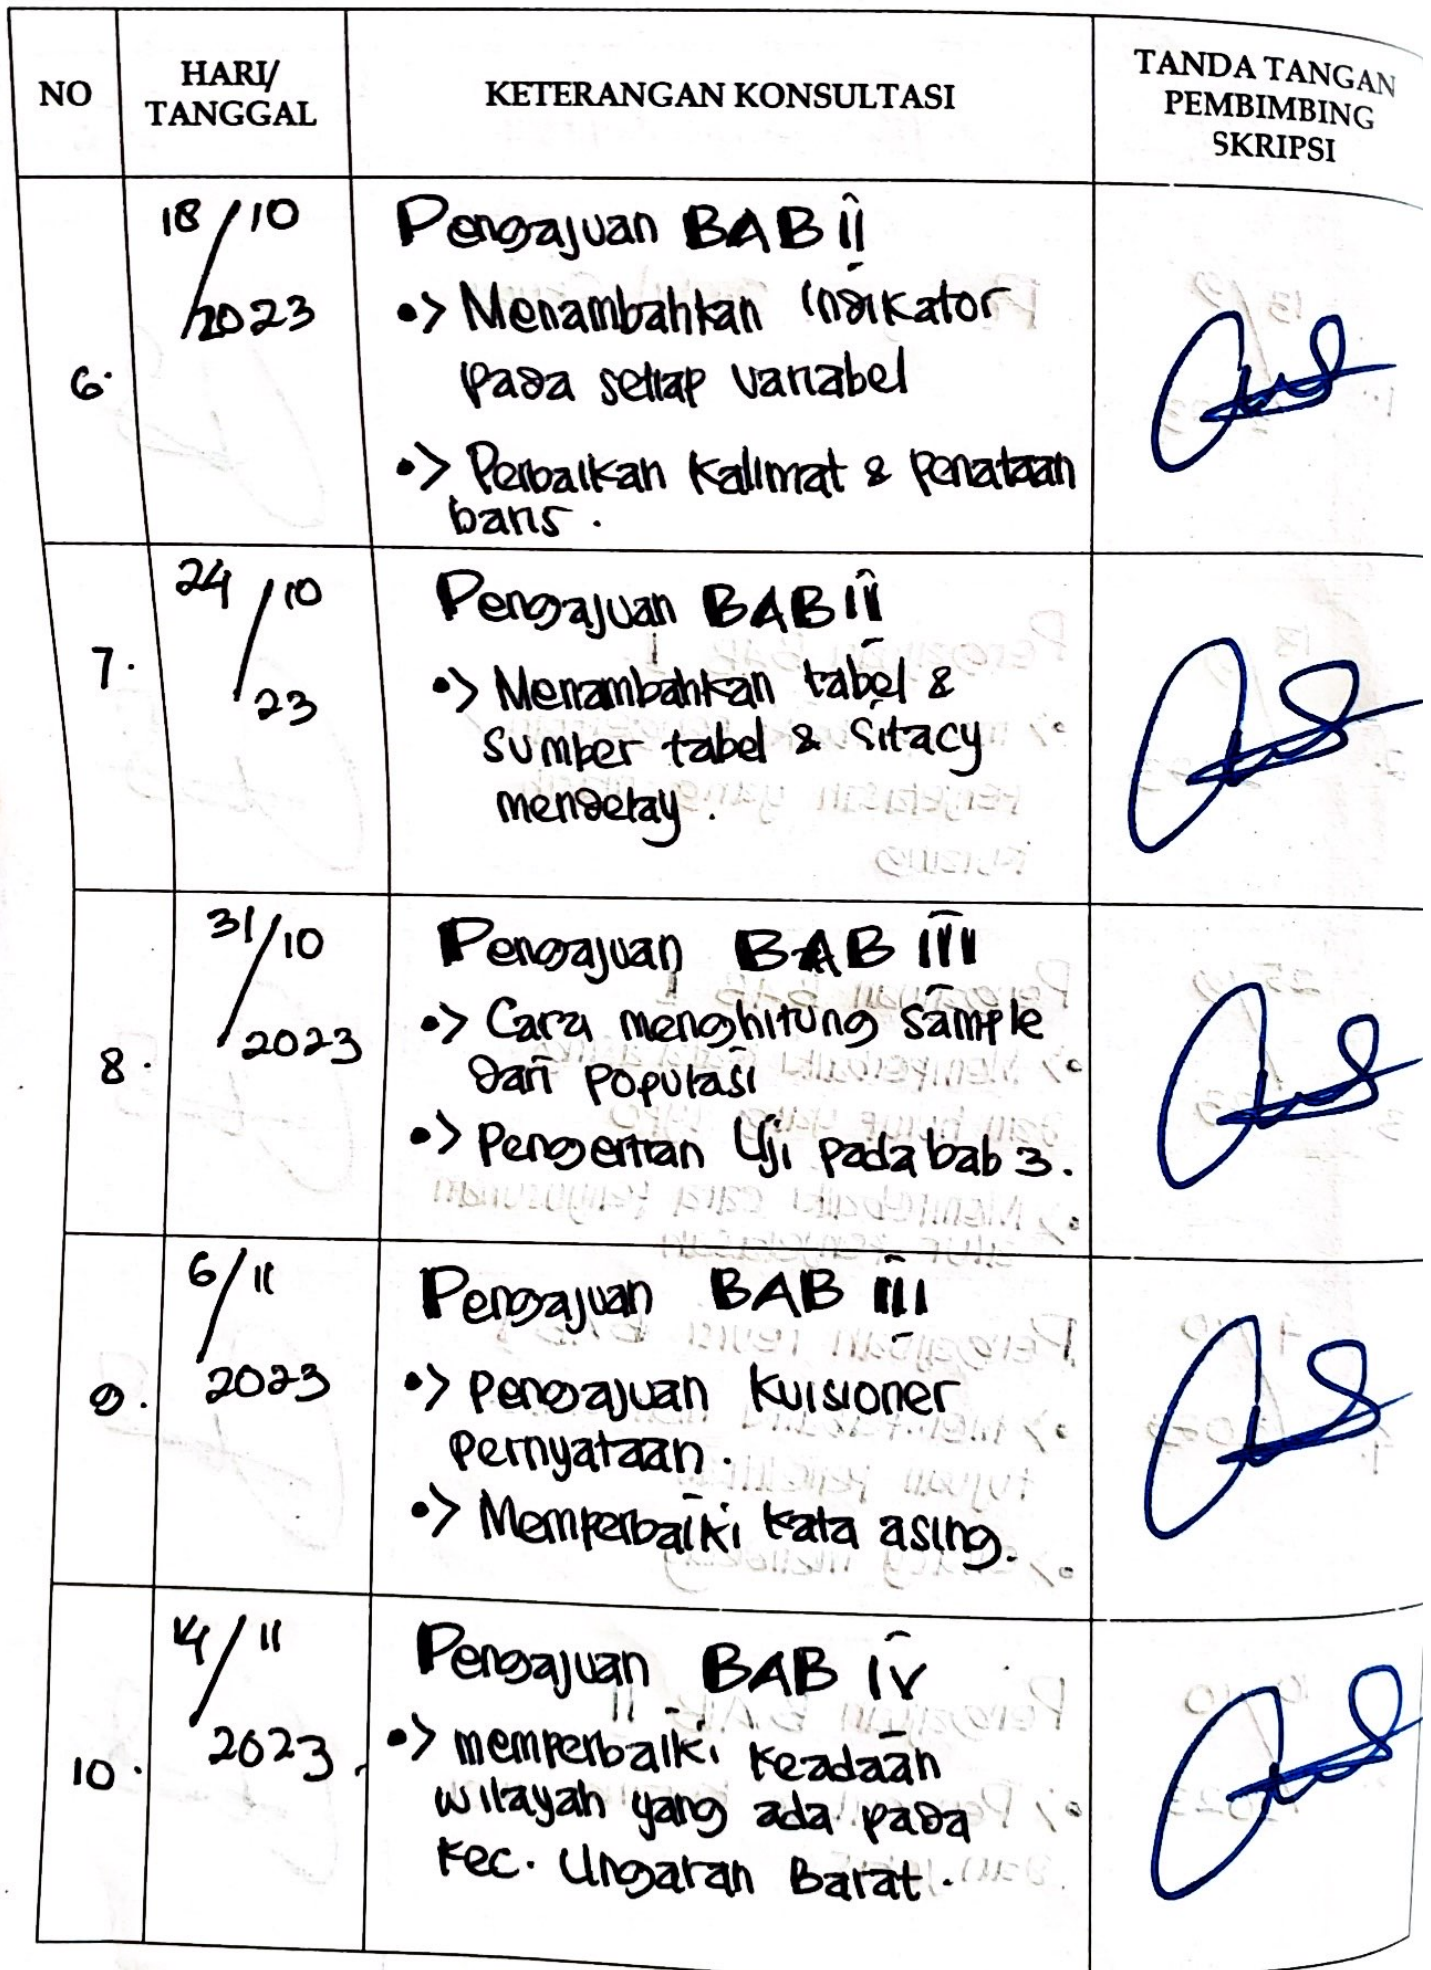 NO
HARI/
TANGGAL
KETERANGAN KONSULTASI
TANDA TANGAN
PEMBIMBING
SKRIPSI
6.
18/10
2023
Pengajuan BAB II
•> Menambahkan indikator
pada setiap variabel
•> Perbaikan Kalimat & penataan
baris.
7.
24/10
23
Pengajuan BAB II
•> Menambahkan tabel &
sumber tabel & Sitacy
mendelay.
8.
31/10
2023
Pengajuan BAB III
•> Cara menghitung sample
dari populasi
•> Pengertian Uji pada bab 3.
9.
6/11
2023
Pengajuan BAB III
•> Pengajuan Kuisioner
Pernyataan.
•> Memperbaiki kata asing.
10.
14/11
2023
Pengajuan BAB IV
•> memperbaiki keadaan
wilayah yang ada pada
Kec. Ungaran Barat.